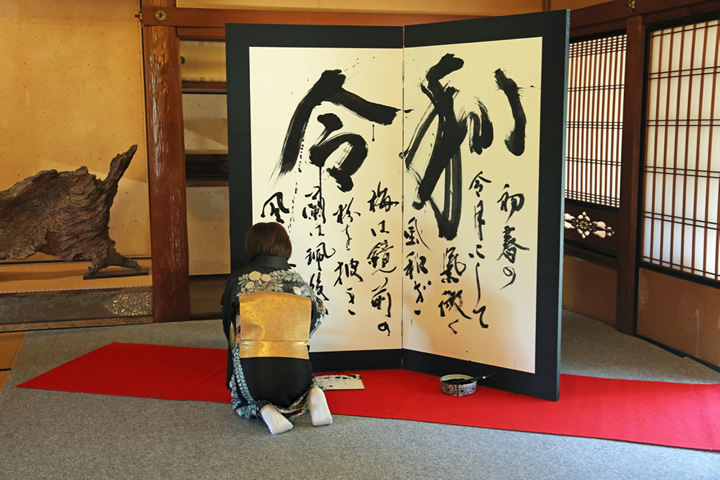 令和
初春の
令月にして
氣淑く
風和ぎ
梅は鏡前の
粉を披き
蘭は珮後
風